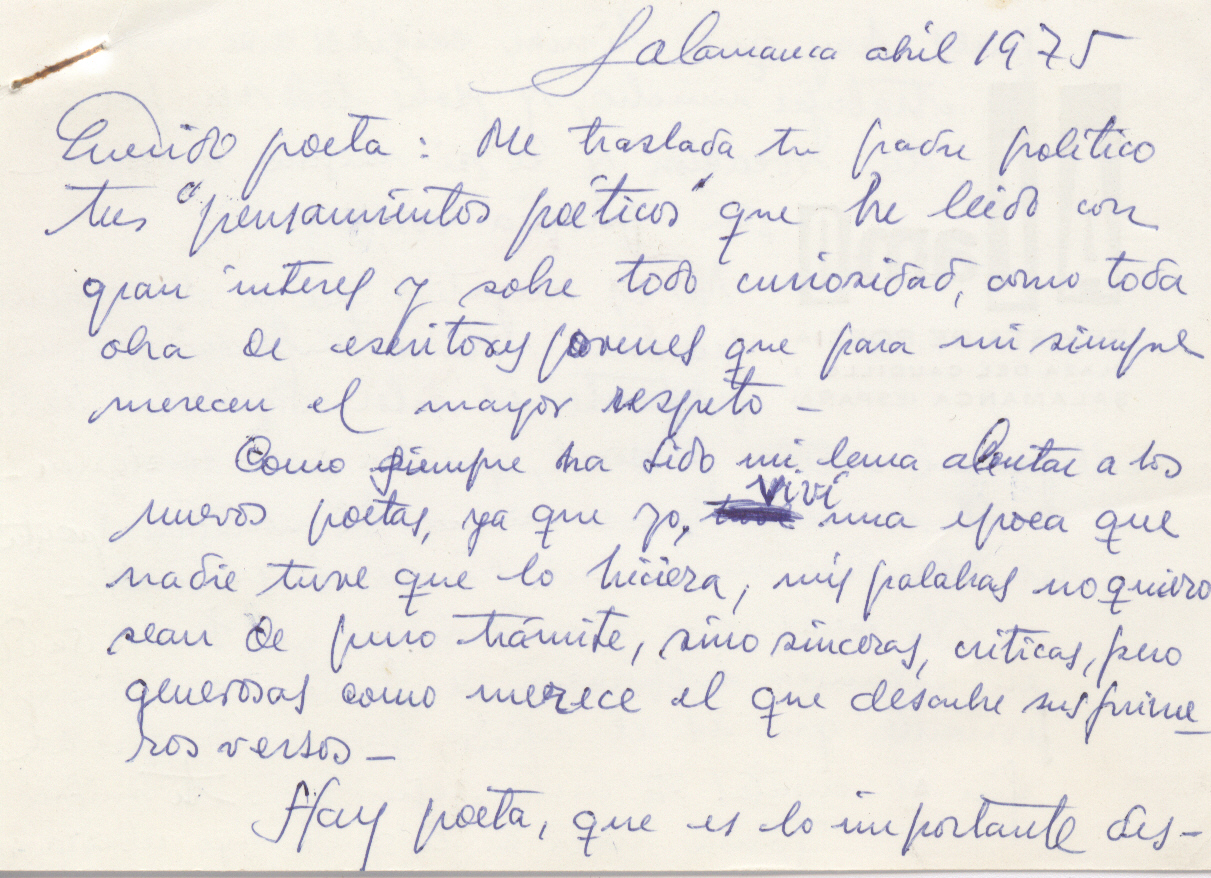 Salamanca abril 1975
Querido poeta: Me traslada tu padre político
tus "pensamientos poéticos" que he leido con
gran interes y sobre todo curiosidad, como toda
obra de escritores jovenes que para mi siempre
merecen el mayor respeto –
Como siempre ha sido mi lema alentar a los
nuevos poetas, ya que yo, viví una epoca que
nadie tuve que lo hiciera, mis palabras no quiero
sean de puro trámite, sino sinceras, criticas, pero
generosas como merece el que descubre sus prime_
ros versos –
Hay poeta, que es lo importante des-